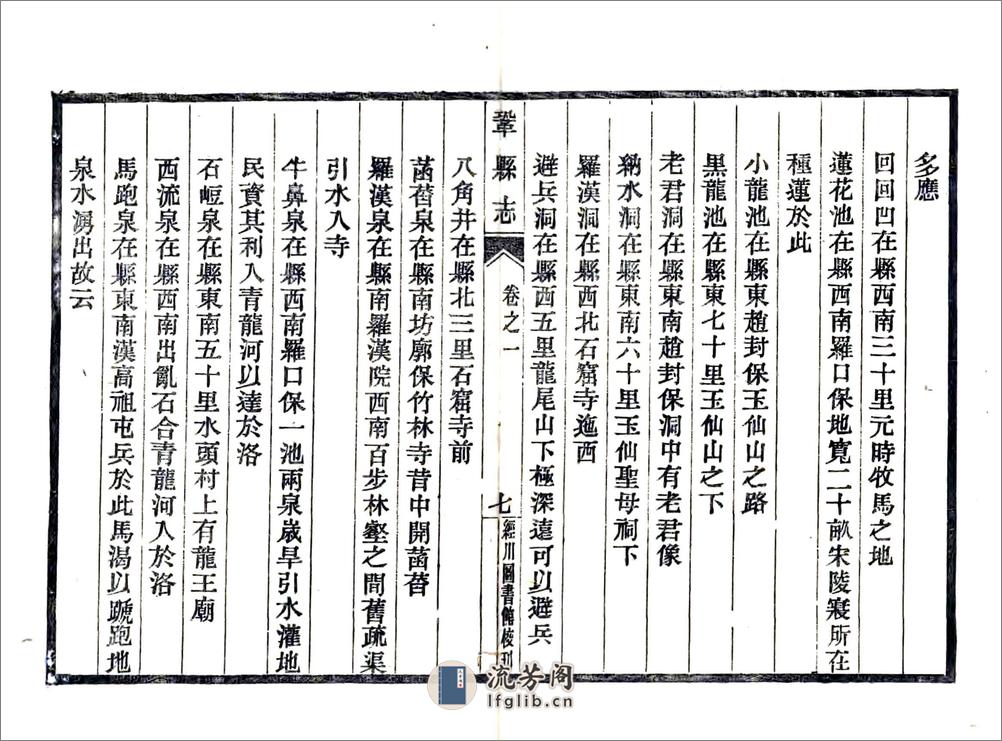 多應
回回凹在縣西南三十里元時牧馬之地
蓮花池在縣西南羅口保地寬二十畝宋陵寢所在
種蓮於此
小龍池在縣東趙封保玉仙山之路
黑龍池在縣東七十里玉仙山之下
老君洞在縣東南趙封保洞中有老君像
納水洞在縣東南六十里玉仙聖母祠下
羅漢洞在縣西北石窟寺迤西
避兵洞在縣西五里龍尾山下極深遠可以避兵
鞏縣志
卷之一
七
經川圖書館校刊
八角井在縣北三里石窟寺前
菡萏泉在縣南坊廓保竹林寺昔中開菡萏
羅漢泉在縣南羅漢院西南百步林壑之間舊疏渠
引水入寺
牛鼻泉在縣西南羅口保一池兩泉歲旱引水灌地
民資其利入青龍河以達於洛
石𡸣泉在縣東南五十里水頭村上有龍王廟
西流泉在縣西南出亂石合青龍河入於洛
馬跑泉在縣東南漢高祖屯兵於此馬渴以蹏跑地
泉水湧出故云
流芳阁
lfglib.cn